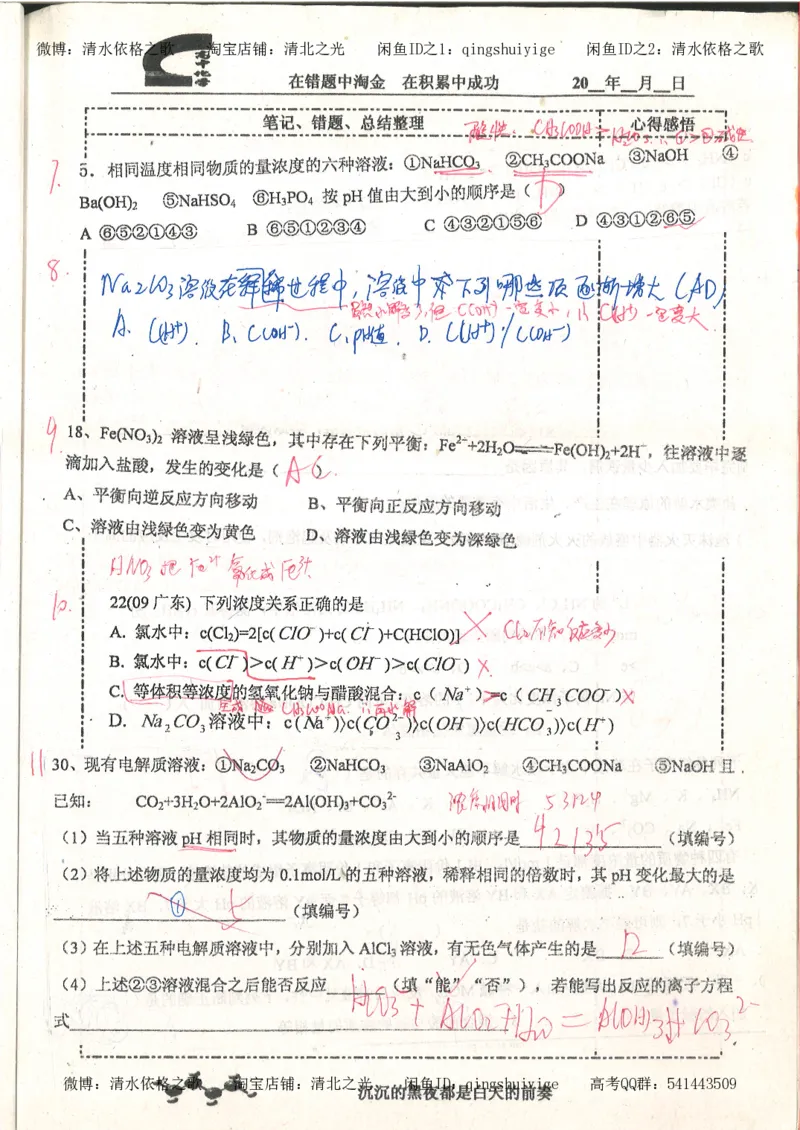 微博：清水依格之歌 淘宝店铺：清北之光 闲鱼ID之1：qingshuiyige 闲鱼ID之2：清水依格之歌
在错题中淘金 在积累中成功 20__年__月__日
笔记、错题、总结整理 心得感悟
酸性：CH₃COOH > H₂CO₃
7.
5．相同温度相同物质的量浓度的六种溶液：①NaHCO₃ ②CH₃COONa ③NaOH ④
Ba(OH)₂ ⑤NaHSO₄ ⑥H₃PO₄ 按 pH 值由大到小的顺序是（ D ）
A ⑥⑤②①④③ B ⑥⑤①②③④ C ④③②①⑤⑥ D ④③①②⑥⑤
8.
Na₂CO₃溶液在稀释过程中，溶液中下列哪些项逐渐增大（AD）
但 C(OH⁻)一定变小，∴ C(H⁺)一定变大
A. C(H⁺). B. C(OH⁻). C. pH值. D. C(H⁺)/C(OH⁻)
9
18、Fe(NO₃)₂ 溶液呈浅绿色，其中存在下列平衡：Fe²⁺+2H₂O══Fe(OH)₂+2H⁺，往溶液中逐
滴加入盐酸，发生的变化是（ AC ）
A、平衡向逆反应方向移动 B、平衡向正反应方向移动
C、溶液由浅绿色变为黄色 D、溶液由浅绿色变为深绿色
HNO₃ 把 Fe²⁺ 氧化成 Fe³⁺
10.
22(09 广东) 下列浓度关系正确的是
A. 氯水中：c(Cl₂)=2[c(ClO⁻)+c(Cl⁻)+C(HClO)] × Cl₂不知反应多少
B. 氯水中：c(Cl⁻)>c(H⁺)>c(OH⁻)>c(ClO⁻) ×
C. 等体积等浓度的氢氧化钠与醋酸混合：c（Na⁺）=c（CH₃COO⁻）×
生成 CH₃COONa ∴ 水解
D. Na₂CO₃溶液中：c(Na⁺)〉c(CO₃²⁻)〉c(OH⁻)〉c(HCO₃⁻)〉c(H⁺)
11
30、现有电解质溶液：①Na₂CO₃ ②NaHCO₃ ③NaAlO₂ ④CH₃COONa ⑤NaOH 且
已知： CO₂+3H₂O+2AlO₂⁻══2Al(OH)₃+CO₃²⁻ 浓度相同时 53124
（1）当五种溶液 pH 相同时，其物质的量浓度由大到小的顺序是 42135 （填编号）
（2）将上述物质的量浓度均为 0.1mol/L 的五种溶液，稀释相同的倍数时，其 pH 变化最大的是
① 5 （填编号）
（3）在上述五种电解质溶液中，分别加入 AlCl₃ 溶液，有无色气体产生的是 12 （填编号）
（4）上述②③溶液混合之后能否反应____（填“能”，“否”），若能写出反应的离子方程
式 HCO₃⁻ + AlO₂⁻ + H₂O = Al(OH)₃↓+ CO₃²⁻
微博：清水依格之歌 淘宝店铺：清北之光 闲鱼ID：qingshuiyige 高考QQ群：541443509
沉沉的黑夜都是白天的前奏